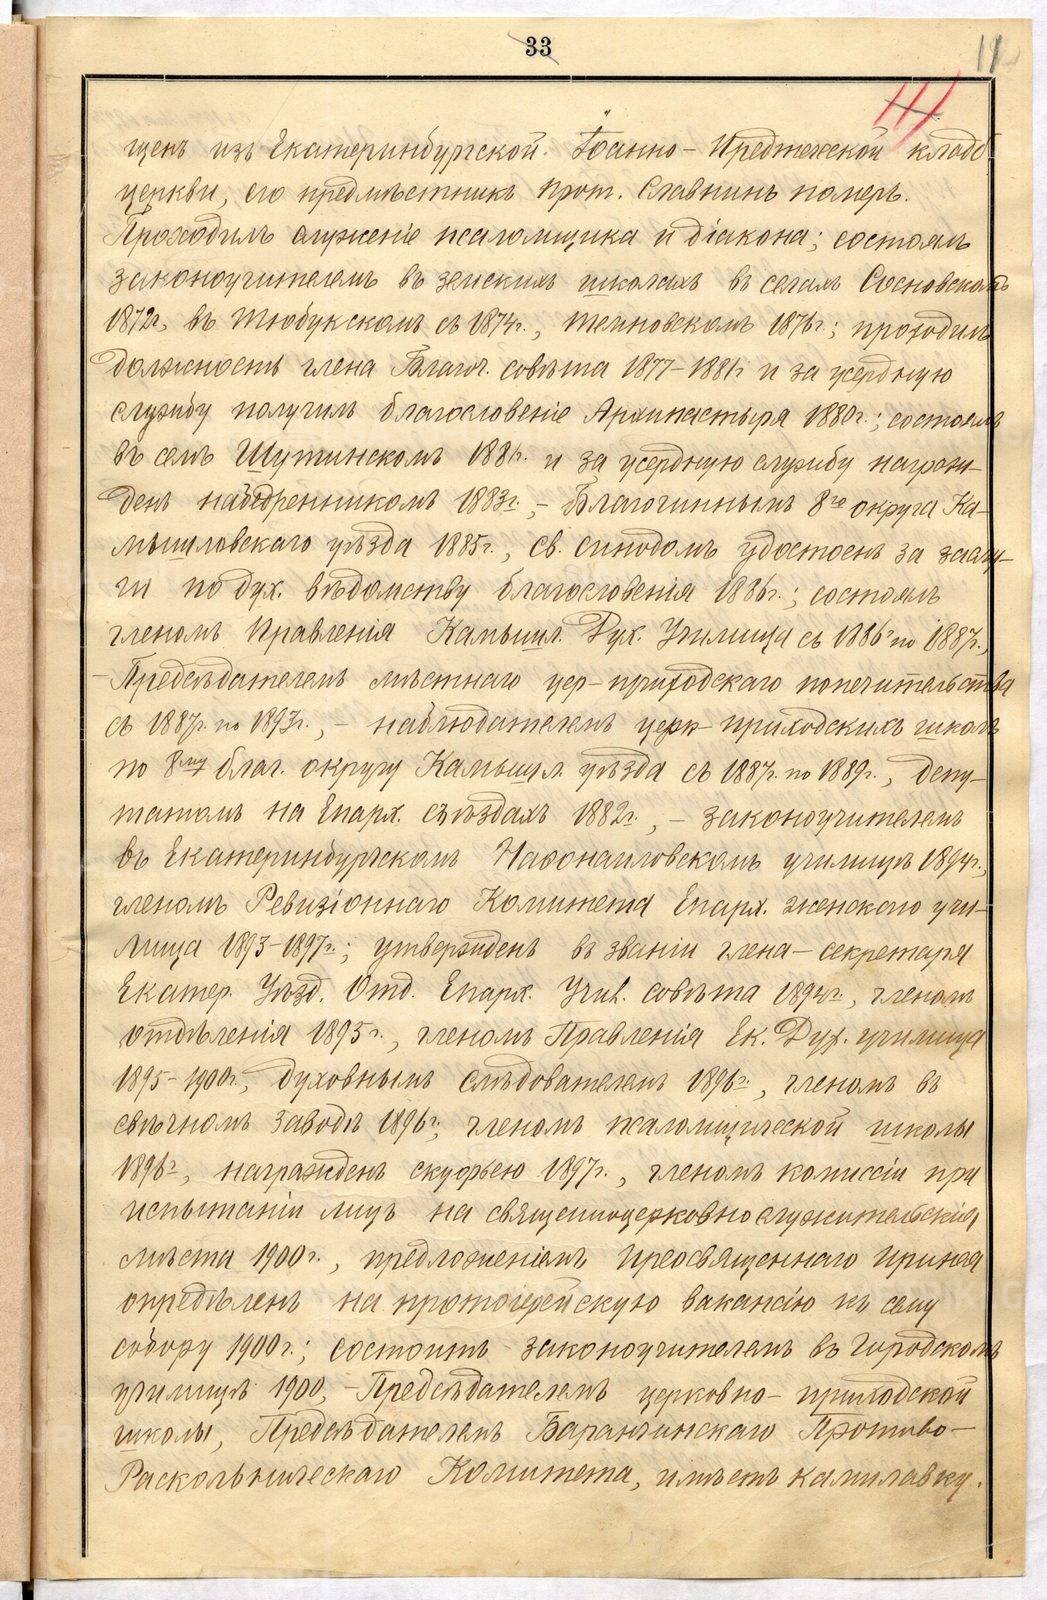 33
11
щенъ изъ Екатеринбургской Іоанно-Предтеческой кладб.
церкви, его предмѣстникъ прот. Славнинъ померъ.
Проходилъ служеніе псаломщика и діакона; состоялъ
законоучителемъ въ земскихъ школахъ въ селахъ Сосновскомъ
1872г., въ Тюбукскомъ съ 1874г., Теченовскомъ 1876г.; проходилъ
должность члена Благоч. совѣта 1877-1881г. и за усердную
службу получилъ благословеніе Архипастыря 1880г.; состоялъ
въ селѣ Шутинскомъ 1881г. и за усердную службу награж-
денъ набедренникомъ 1883г., - Благочиннымъ 8го округа Ка-
мышловскаго уѣзда 1885г., Св. Синодомъ удостоенъ за заслу-
ги по дух. вѣдомству благословенія 1886г.; состоялъ
членомъ Правленія Камышл. Дух. Училища съ 1886г по 1887г.,
- Предсѣдателемъ мѣстнаго цер-приходскаго попечительства
съ 1887г. по 1893г., - наблюдателемъ церк-приходскихъ школъ
по 8му благ. округу Камышл. уѣзда съ 1887г. по 1889г., депу-
татомъ на Епарх. съѣздахъ 1882г., - законоучителемъ
въ Екатеринбургскомъ училищѣ 1894г.,
членомъ Ревизіоннаго Комитета Епарх. женскаго учи-
лища 1893-1897г.; утвержденъ въ званіи члена-секретаря
Екатер. Уѣзд. Отд. Епарх. Учил. совѣта 1894г., членомъ
отдѣленія 1895г., членомъ Правленія Ек. Дух. училища
1895-1900г., духовнымъ слѣдователемъ 1896г., членомъ въ
свѣчномъ заводѣ 1896г., членомъ псаломщической школы
1896г., награжденъ скуфьею 1897г., членомъ комиссіи при
испытаніи лицъ на священноцерковнослужительскія
мѣста 1900г., предложеніемъ Преосвященнаго Иринея
опредѣленъ на протоіерейскую вакансію къ сему
собору 1900г.; состоитъ законоучителемъ въ Городскомъ
училищѣ 1900, - Предсѣдателемъ церковно-приходской
школы, Предсѣдателемъ Баранчинскаго Противо-
Раскольническаго Комитета, имѣетъ камилавку.